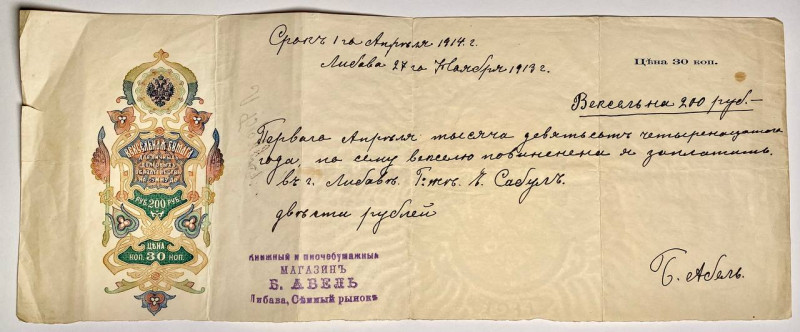 Срокъ 1го Апрѣля 1914 г.
Либава 27го Ноября 1913 г.
Цѣна 30 коп.
Вексель на 200 руб.—
Перваго Апрѣля тысяча девятьсотъ четыренадцатаго
года, по сему векселю повиненена я заплатить
въ г. Либавѣ Г-жѣ Сабулъ.
двѣсти рублей
Б. Абель.
ВЕКСЕЛЬНАЯ БУМАГА
ДЛЯ ЛИЧНЫХЪ
ДОЛГОВЫХЪ
ОБЯЗАТЕЛЬСТВЪ
НА СУММУ ДО
РУБ. 200 РУБ.
ЦѢНА
КОП. 30 КОП.
Книжный и писчебумажный
МАГАЗИНЪ
Б. АБЕЛЬ
Либава, Сѣнный рынокъ